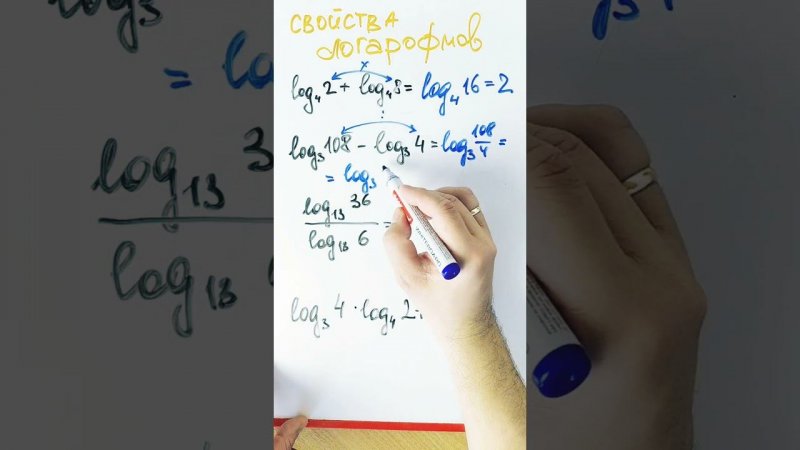 СВОЙСТВА
логарофмов
×
log₄2 + log₄8 = log₄16 = 2
:
log₃108 - log₃4 = log₃ 108/4 =
= log₃
log₁₃36
log₁₃6 =
log₃4 · log₄2 ·